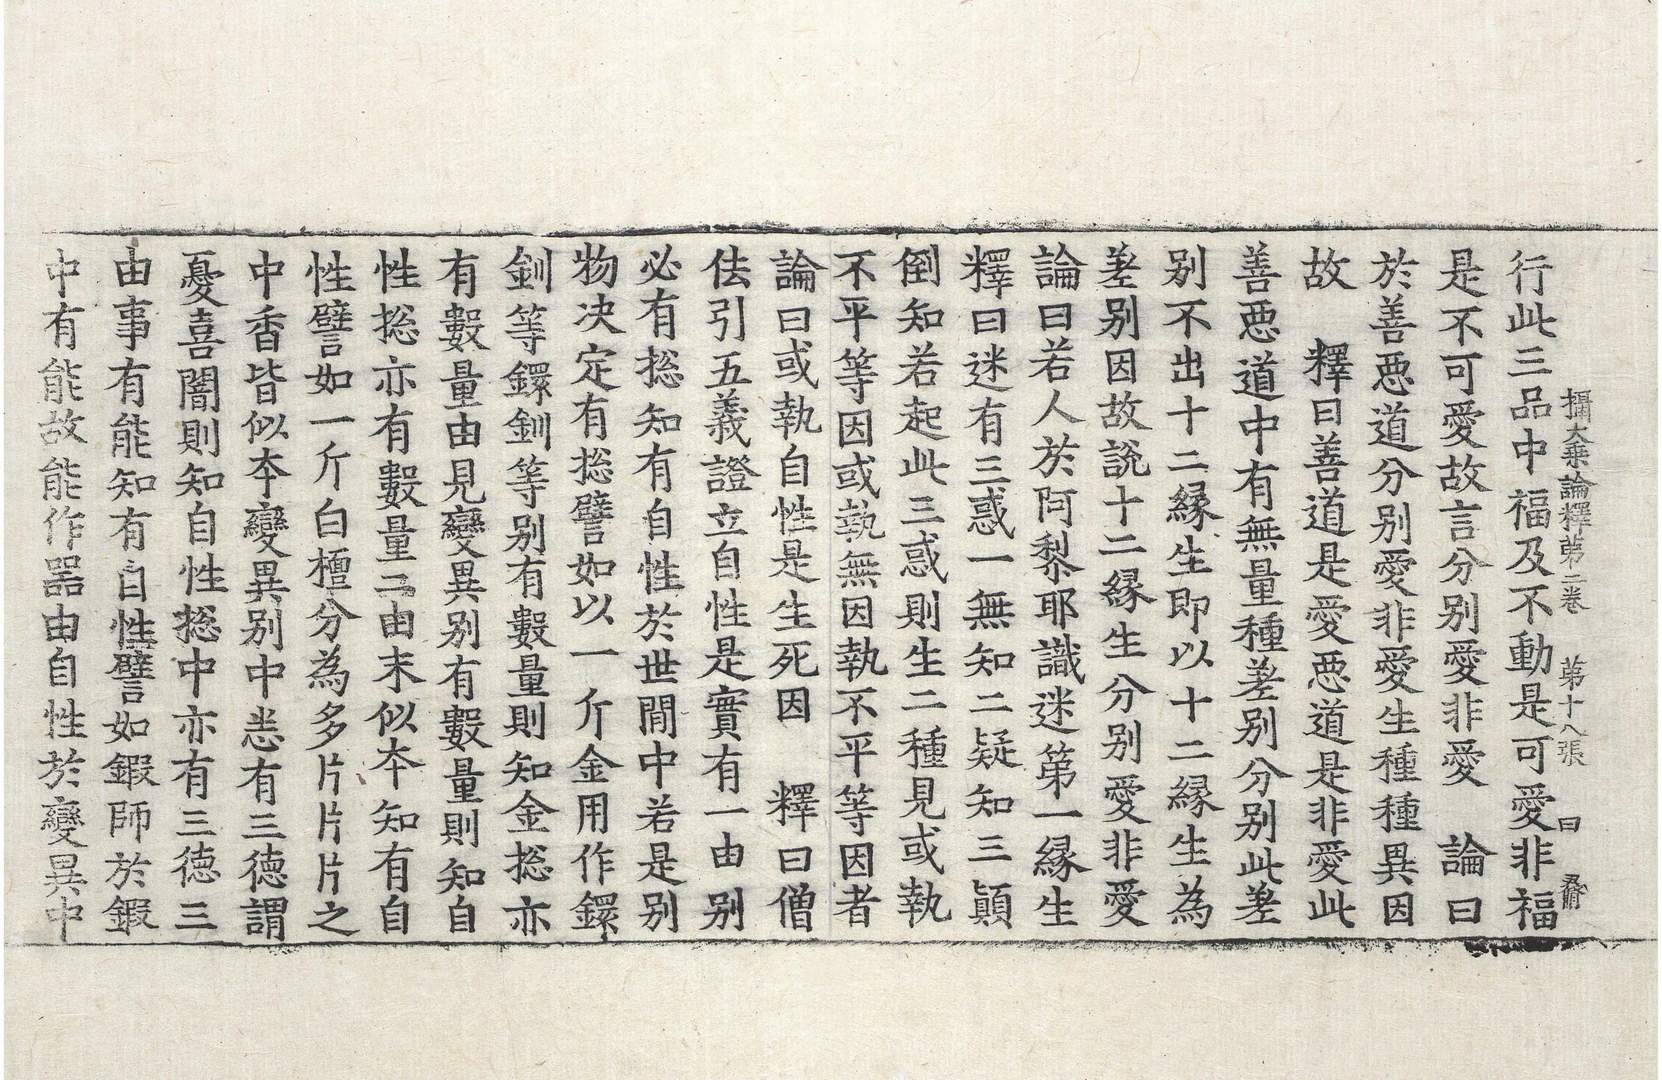 攝大乗論釋第二卷　第十八張　曰
行此三品中福及不動是可愛非福
是不可愛故言分別愛非愛　論曰
於善惡道分別愛非愛生種種異因
故　釋曰善道是愛惡道是非愛此
善惡道中有無量種差別分別此差
別不出十二縁生即以十二縁生為
差別因故說十二縁生分別愛非愛
論曰若人於阿梨耶識迷第一縁生
釋曰迷有三惑一無知二疑知三顛
倒知若起此三惑則生二種見或執
不平等因或執無因執不平等因者
論曰或執自性是生死因　釋曰僧
佉引五義證立自性是實有一由別
必有捴知有自性於世間中若是別
物决定有捴譬如以一斤金用作鐶
釧等鐶釧等別有數量則知金捴亦
有數量由見變異別有數量則知自
性捴亦有數量二由末似夲知有自
性譬如一斤白檀分為多片片片之
中香皆似夲變異別中悉有三德謂
憂喜闇則知自性捴中亦有三德三
由事有能知有自性譬如鍜師於鍜
中有能故能作器由自性於變異中